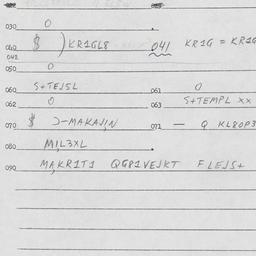 030 0
040 $ ) KR1GL8 041 KR1G = KR1G
042
050 0
060 S+TEJ5L 061 0
062 0 063 S+TEMPL XX
070 $ J-MAKAJ,N 071 — Q KL80P3
080 M,L3XL
090 MA,KR1T1 QG81VEJKT FLEJS+